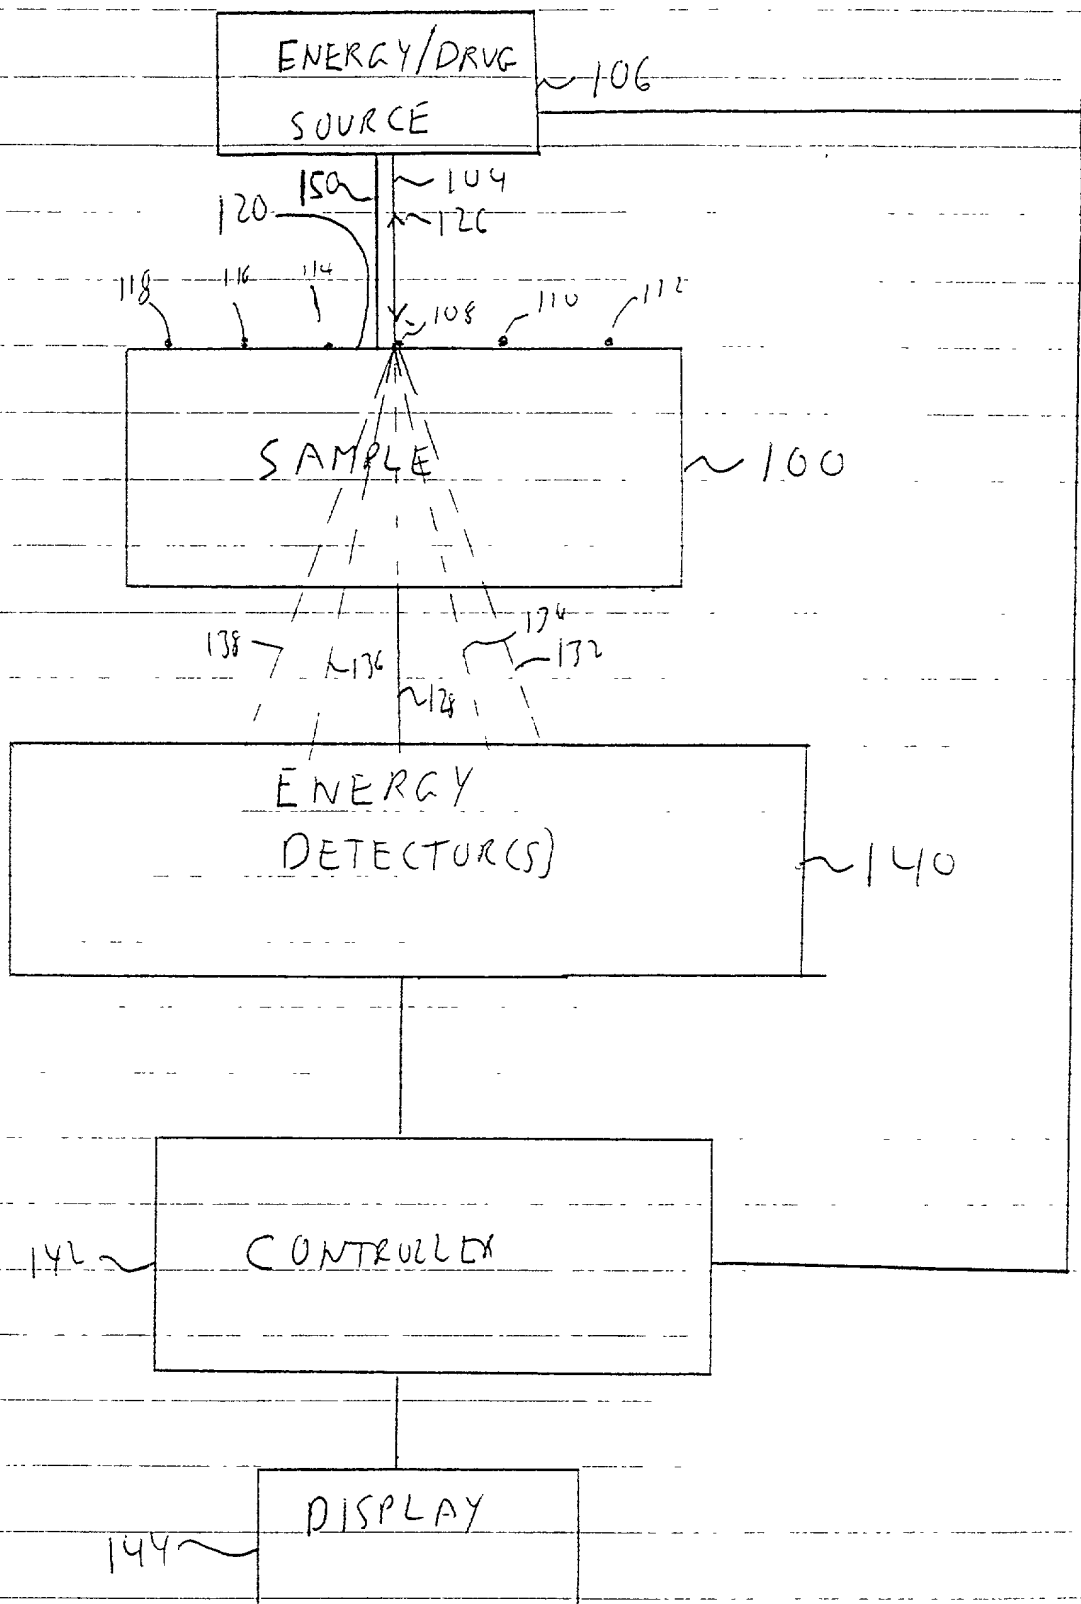 ENERGY/DRUG
SOURCE
106
150
104
120
126
118
116
114
108
110
112
SAMPLE
100
138
136
134
132
128
ENERGY
DETECTOR(S)
140
142
CONTROLLER
DISPLAY
144